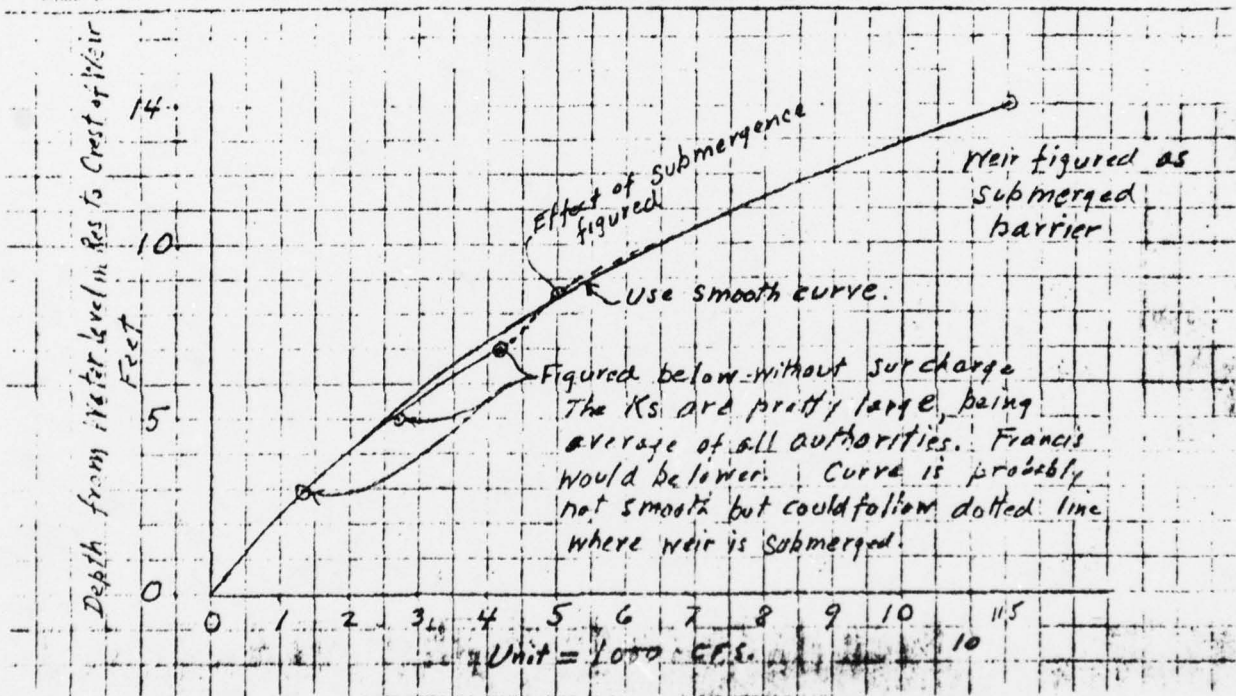 Depth from water level in Res to Crest of Weir
Feet
14
10
5
0
Effect of submergence
figured
Weir figured as
submerged
barrier
Use smooth curve.
Figured below without surcharge
The Ks are pretty large, being
average of all authorities. Francis
would be lower. Curve is probably
not smooth but could follow dotted line
where weir is submerged.
0 1 2 3 4 5 6 7 8 9 10 11.5
10
1 Unit = 1000 C.F.S.